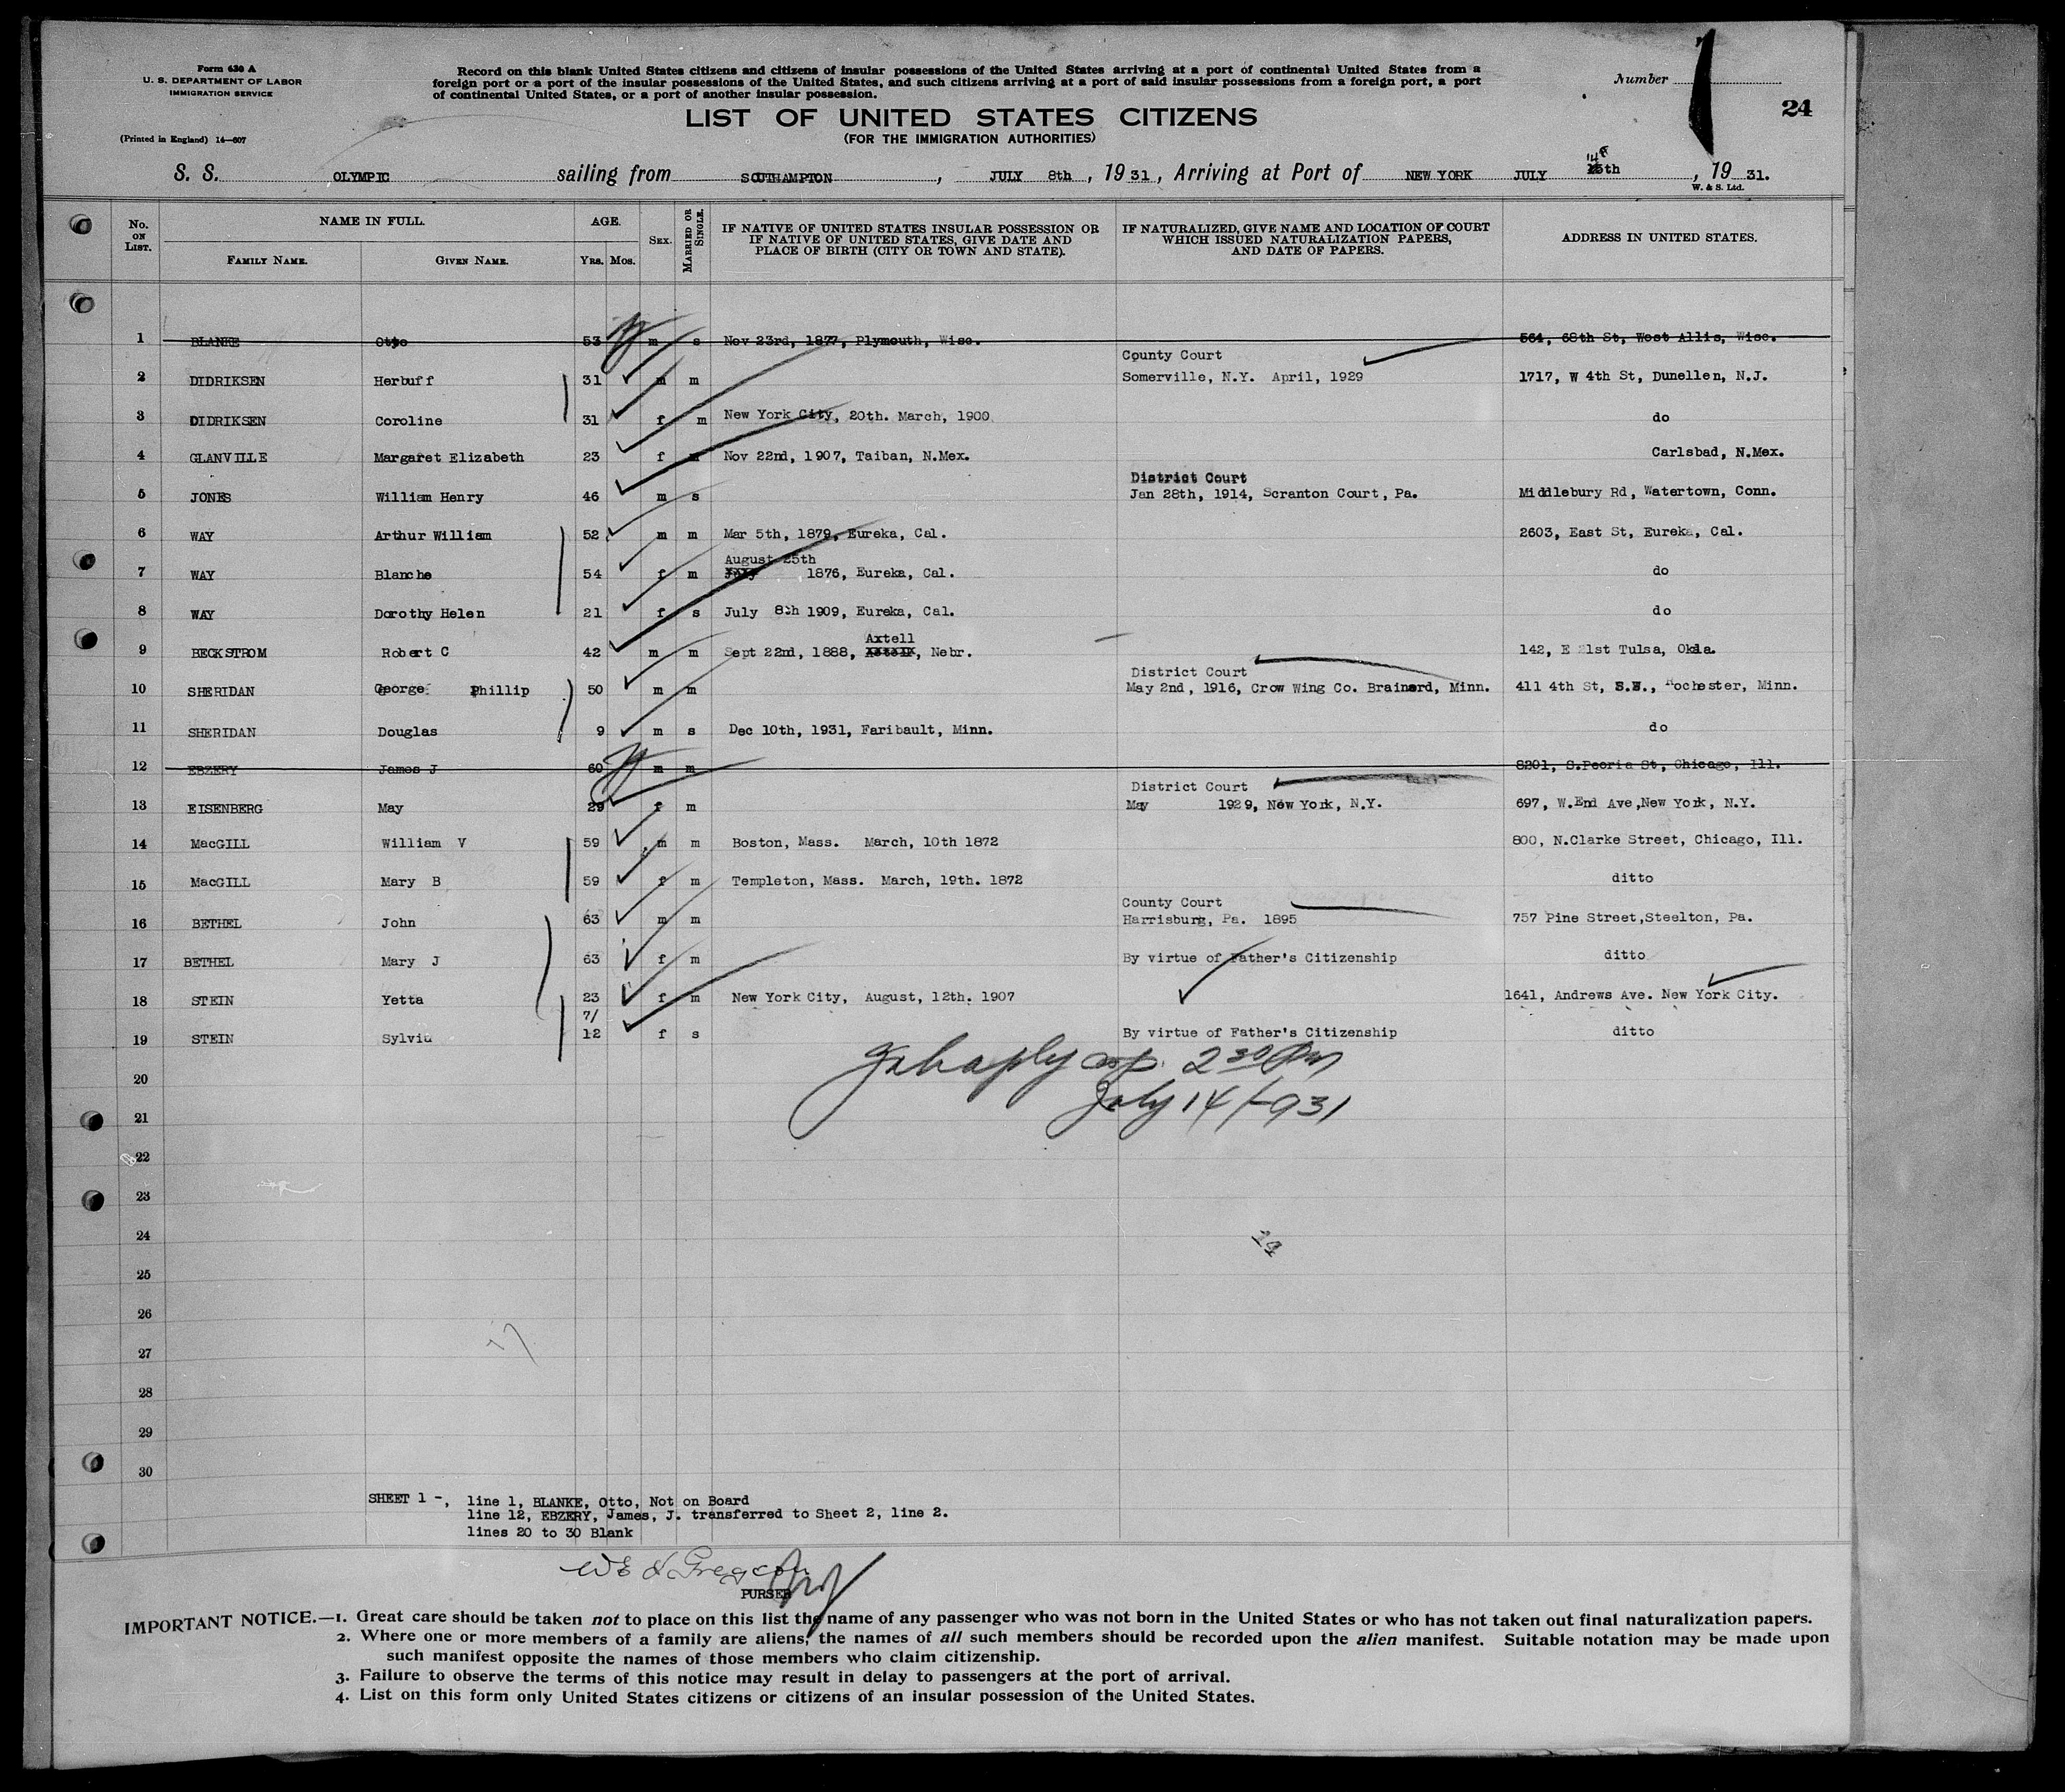 Form 630 A
U. S. DEPARTMENT OF LABOR
IMMIGRATION SERVICE
(Printed in England) 14—607
Record on this blank United States citizens and citizens of insular possessions of the United States arriving at a port of continental United States from a
foreign port or a port of the insular possessions of the United States, and such citizens arriving at a port of said insular possessions from a foreign port, a port
of continental United States, or a port of another insular possession.
Number
24
LIST OF UNITED STATES CITIZENS
(FOR THE IMMIGRATION AUTHORITIES)
S. S. OLYMPIC sailing from SOUTHAMPTON, JULY 8th, 1931, Arriving at Port of NEW YORK JULY 14th, 1931.
W. & S. Ltd.
No. ON LIST. NAME IN FULL. AGE. SEX. MARRIED OR SINGLE. IF NATIVE OF UNITED STATES INSULAR POSSESSION OR IF NATIVE OF UNITED STATES, GIVE DATE AND PLACE OF BIRTH (CITY OR TOWN AND STATE). IF NATURALIZED, GIVE NAME AND LOCATION OF COURT WHICH ISSUED NATURALIZATION PAPERS, AND DATE OF PAPERS. ADDRESS IN UNITED STATES.
FAMILY NAME. GIVEN NAME. YRS. MOS.
1 BLANKE Otto 53 m s Nov 23rd, 1877, Plymouth, Wisc. 564, 68th St, West Allis, Wisc.
County Court
2 DIDRIKSEN Herbuff 31 m m Somerville, N.Y. April, 1929 1717, W 4th St, Dunellen, N.J.
3 DIDRIKSEN Coroline 31 f m New York City, 20th. March, 1900 do
4 GLANVILLE Margaret Elizabeth 23 f Nov 22nd, 1907, Taiban, N.Mex. Carlsbad, N.Mex.
District Court
5 JONES William Henry 46 m s Jan 28th, 1914, Scranton Court, Pa. Middlebury Rd, Watertown, Conn.
6 WAY Arthur William 52 m m Mar 5th, 1879, Eureka, Cal. 2603, East St, Eureka, Cal.
August 25th
7 WAY Blanche 54 f m July 1876, Eureka, Cal. do
8 WAY Dorothy Helen 21 f s July 8th 1909, Eureka, Cal. do
Axtell
9 BECKSTROM Robert C 42 m m Sept 22nd, 1888, Nebr. 142, E 21st Tulsa, Okla.
District Court
10 SHERIDAN George Phillip 50 m m May 2nd, 1916, Crow Wing Co. Brainerd, Minn. 411 4th St, S.W., Rochester, Minn.
11 SHERIDAN Douglas 9 m s Dec 10th, 1931, Faribault, Minn. do
12 EBZERY James J 60 m m 8201, S.Peoria St, Chicago, Ill.
District Court
13 EISENBERG May 29 f m May 1929, New York, N.Y. 697, W.End Ave,New York, N.Y.
14 MacGILL William V 59 m m Boston, Mass. March, 10th 1872 800, N.Clarke Street, Chicago, Ill.
15 MacGILL Mary B 59 f m Templeton, Mass. March, 19th. 1872 ditto
County Court
16 BETHEL John 63 m m Harrisburg, Pa. 1895 757 Pine Street,Steelton, Pa.
17 BETHEL Mary J 63 f m By virtue of Father's Citizenship ditto
18 STEIN Yetta 23 f m New York City, August, 12th. 1907 1641, Andrews Ave. New York City.
19 STEIN Sylvia 7/12 f s By virtue of Father's Citizenship ditto
2 30 Pm
July 14/-931
20
21
22
23
24
24
25
26
27
28
29
30
SHEET 1 -, line 1, BLANKE, Otto, Not on Board
line 12, EBZERY, James, J. transferred to Sheet 2, line 2.
lines 20 to 30 Blank
PURSER
IMPORTANT NOTICE.—1. Great care should be taken not to place on this list the name of any passenger who was not born in the United States or who has not taken out final naturalization papers.
2. Where one or more members of a family are aliens, the names of all such members should be recorded upon the alien manifest. Suitable notation may be made upon
such manifest opposite the names of those members who claim citizenship.
3. Failure to observe the terms of this notice may result in delay to passengers at the port of arrival.
4. List on this form only United States citizens or citizens of an insular possession of the United States.